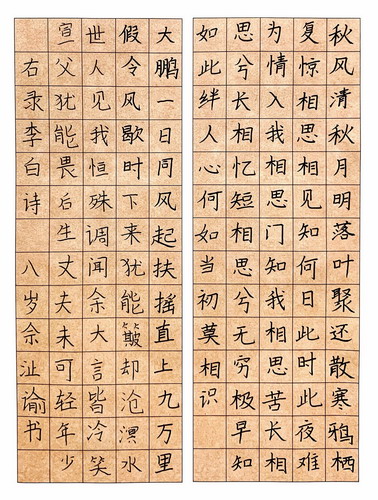 秋风清秋月明落叶聚还散寒鸦栖
复惊相思相见知何日此时此夜难
为情入我相思门知我相思苦长相
思兮长相忆短相思兮无穷极早知
如此绊人心何如当初莫相识
大鹏一日同风起扶摇直上九万里
假令风歇时下来犹能簸却沧溟水
世人见我恒殊调闻余大言皆冷笑
宣父犹能畏后生丈夫未可轻年少
右录李白诗 八岁佘沚谕书